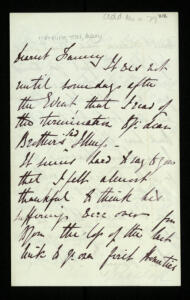 Dearest Fanny
It was not
until some days after
the Event that I was of
the termination of yr. dear
Brother's
It seems hard to say to you
that I felt almost
thankful to think his
sufferings were over for
upon the loss of the last
link to your first families